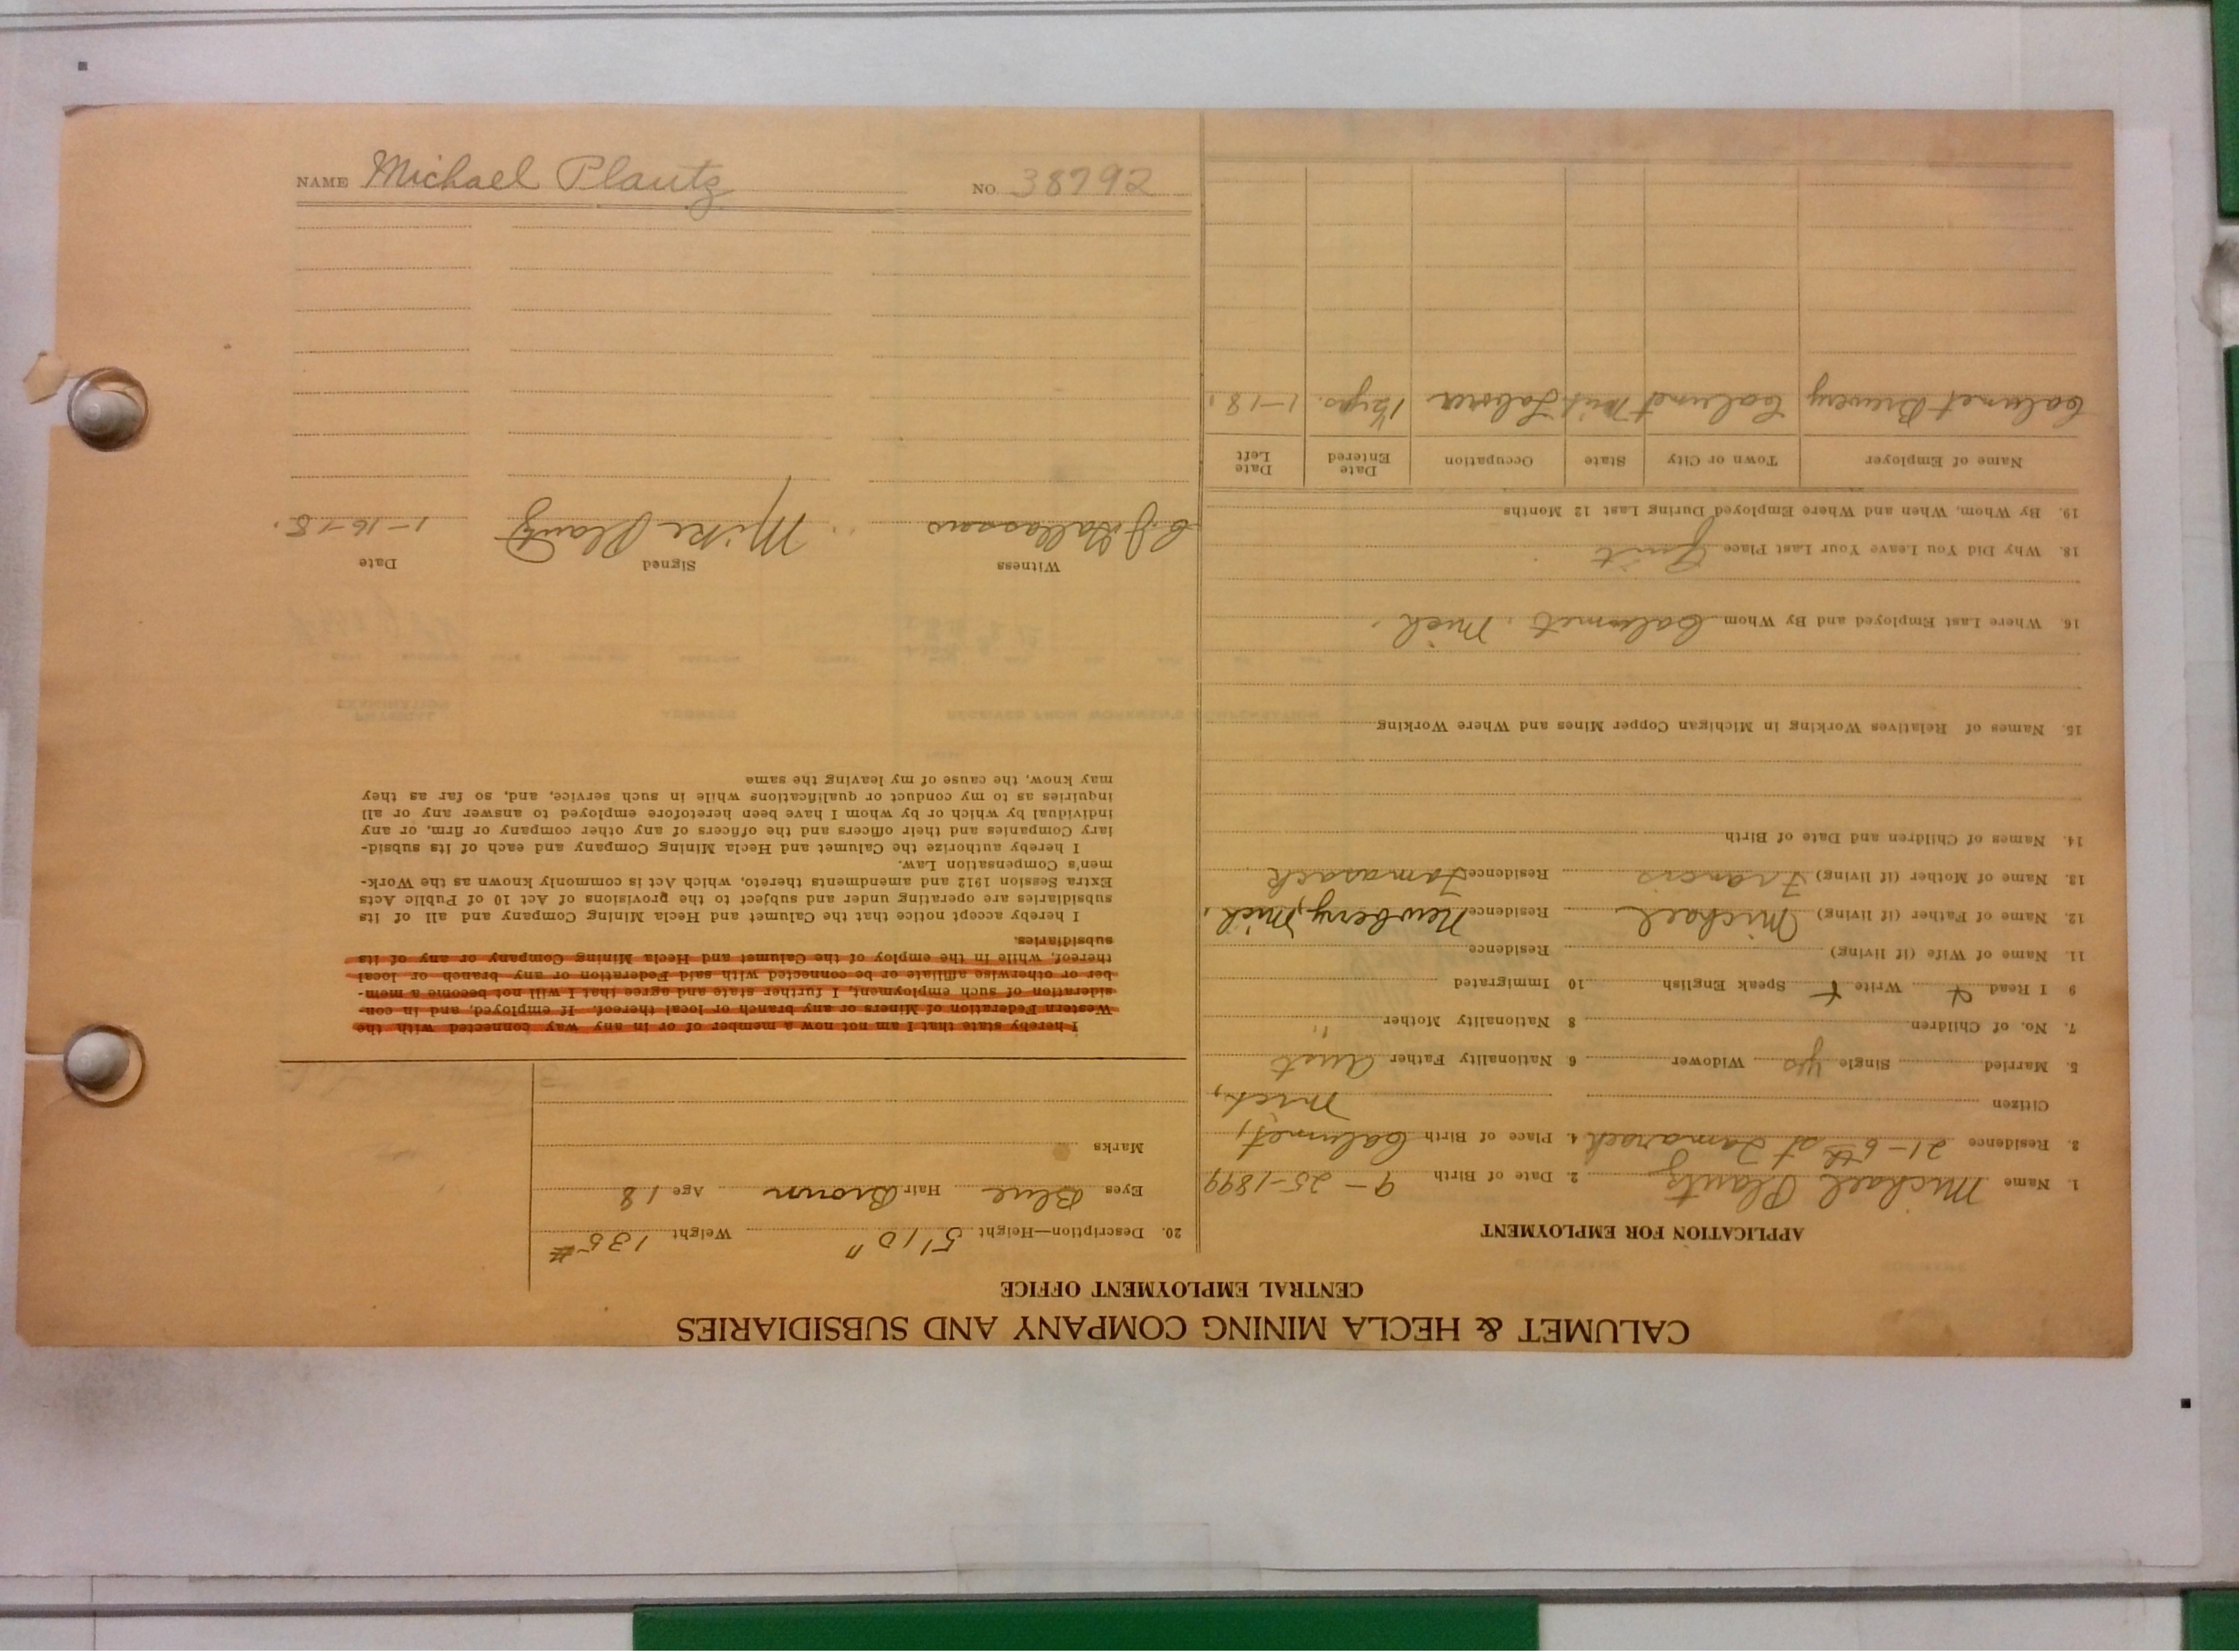 CALUMET & HECLA MINING COMPANY AND SUBSIDIARIES
CENTRAL EMPLOYMENT OFFICE
APPLICATION FOR EMPLOYMENT
1. Name Michael Plautz 2. Date of Birth 9-25-1899
3. Residence 21-6th st Tamarack 4. Place of Birth Calumet,
Citizen Mich,
5. Married Single yes Widower 6 Nationality Father Aust
7. No. of Children 8 Nationality Mother "
9 I Read Write Speak English 10 Immigrated
11. Name of Wife (if living) Residence
12. Name of Father (if living) Michael Residence Newberry, Mich.
13. Name of Mother (if living) Francis Residence Tamarack
14. Names of Children and Date of Birth
15. Names of Relatives Working in Michigan Copper Mines and Where Working
16. Where Last Employed and By Whom Calumet, Mich.
18. Why Did You Leave Your Last Place Quit
19. By Whom, When and Where Employed During Last 12 Months
Name of Employer Town or City State Occupation Date Entered Date Left
Calumet Brewery Calumet Mich Laborer 1-18.
20. Description—Height 5'10" Weight 135#
Eyes Blue Hair Brown Age 18
Marks
I hereby state that I am not now a member of or in any way connected with the
Western Federation of Miners or any branch or local thereof. If employed, and in con-
sideration of such employment, I further state and agree that I will not become a mem-
ber or otherwise affiliate or be connected with said Federation or any branch or local
thereof, while in the employ of the Calumet and Hecla Mining Company or any of its
subsidiaries.
I hereby accept notice that the Calumet and Hecla Mining Company and all of its
subsidiaries are operating under and subject to the provisions of Act 10 of Public Acts
Extra Session 1912 and amendments thereto, which Act is commonly known as the Work-
men's Compensation Law.
I hereby authorize the Calumet and Hecla Mining Company and each of its subsid-
iary Companies and their officers and the officers of any other company or firm, or any
individual by which or by whom I have been heretofore employed to answer any or all
inquiries as to my conduct or qualifications while in such service, and, so far as they
may know, the cause of my leaving the same
Witness Signed Date
Mike Plautz 1-16-18.
NAME Michael Plautz NO 38792